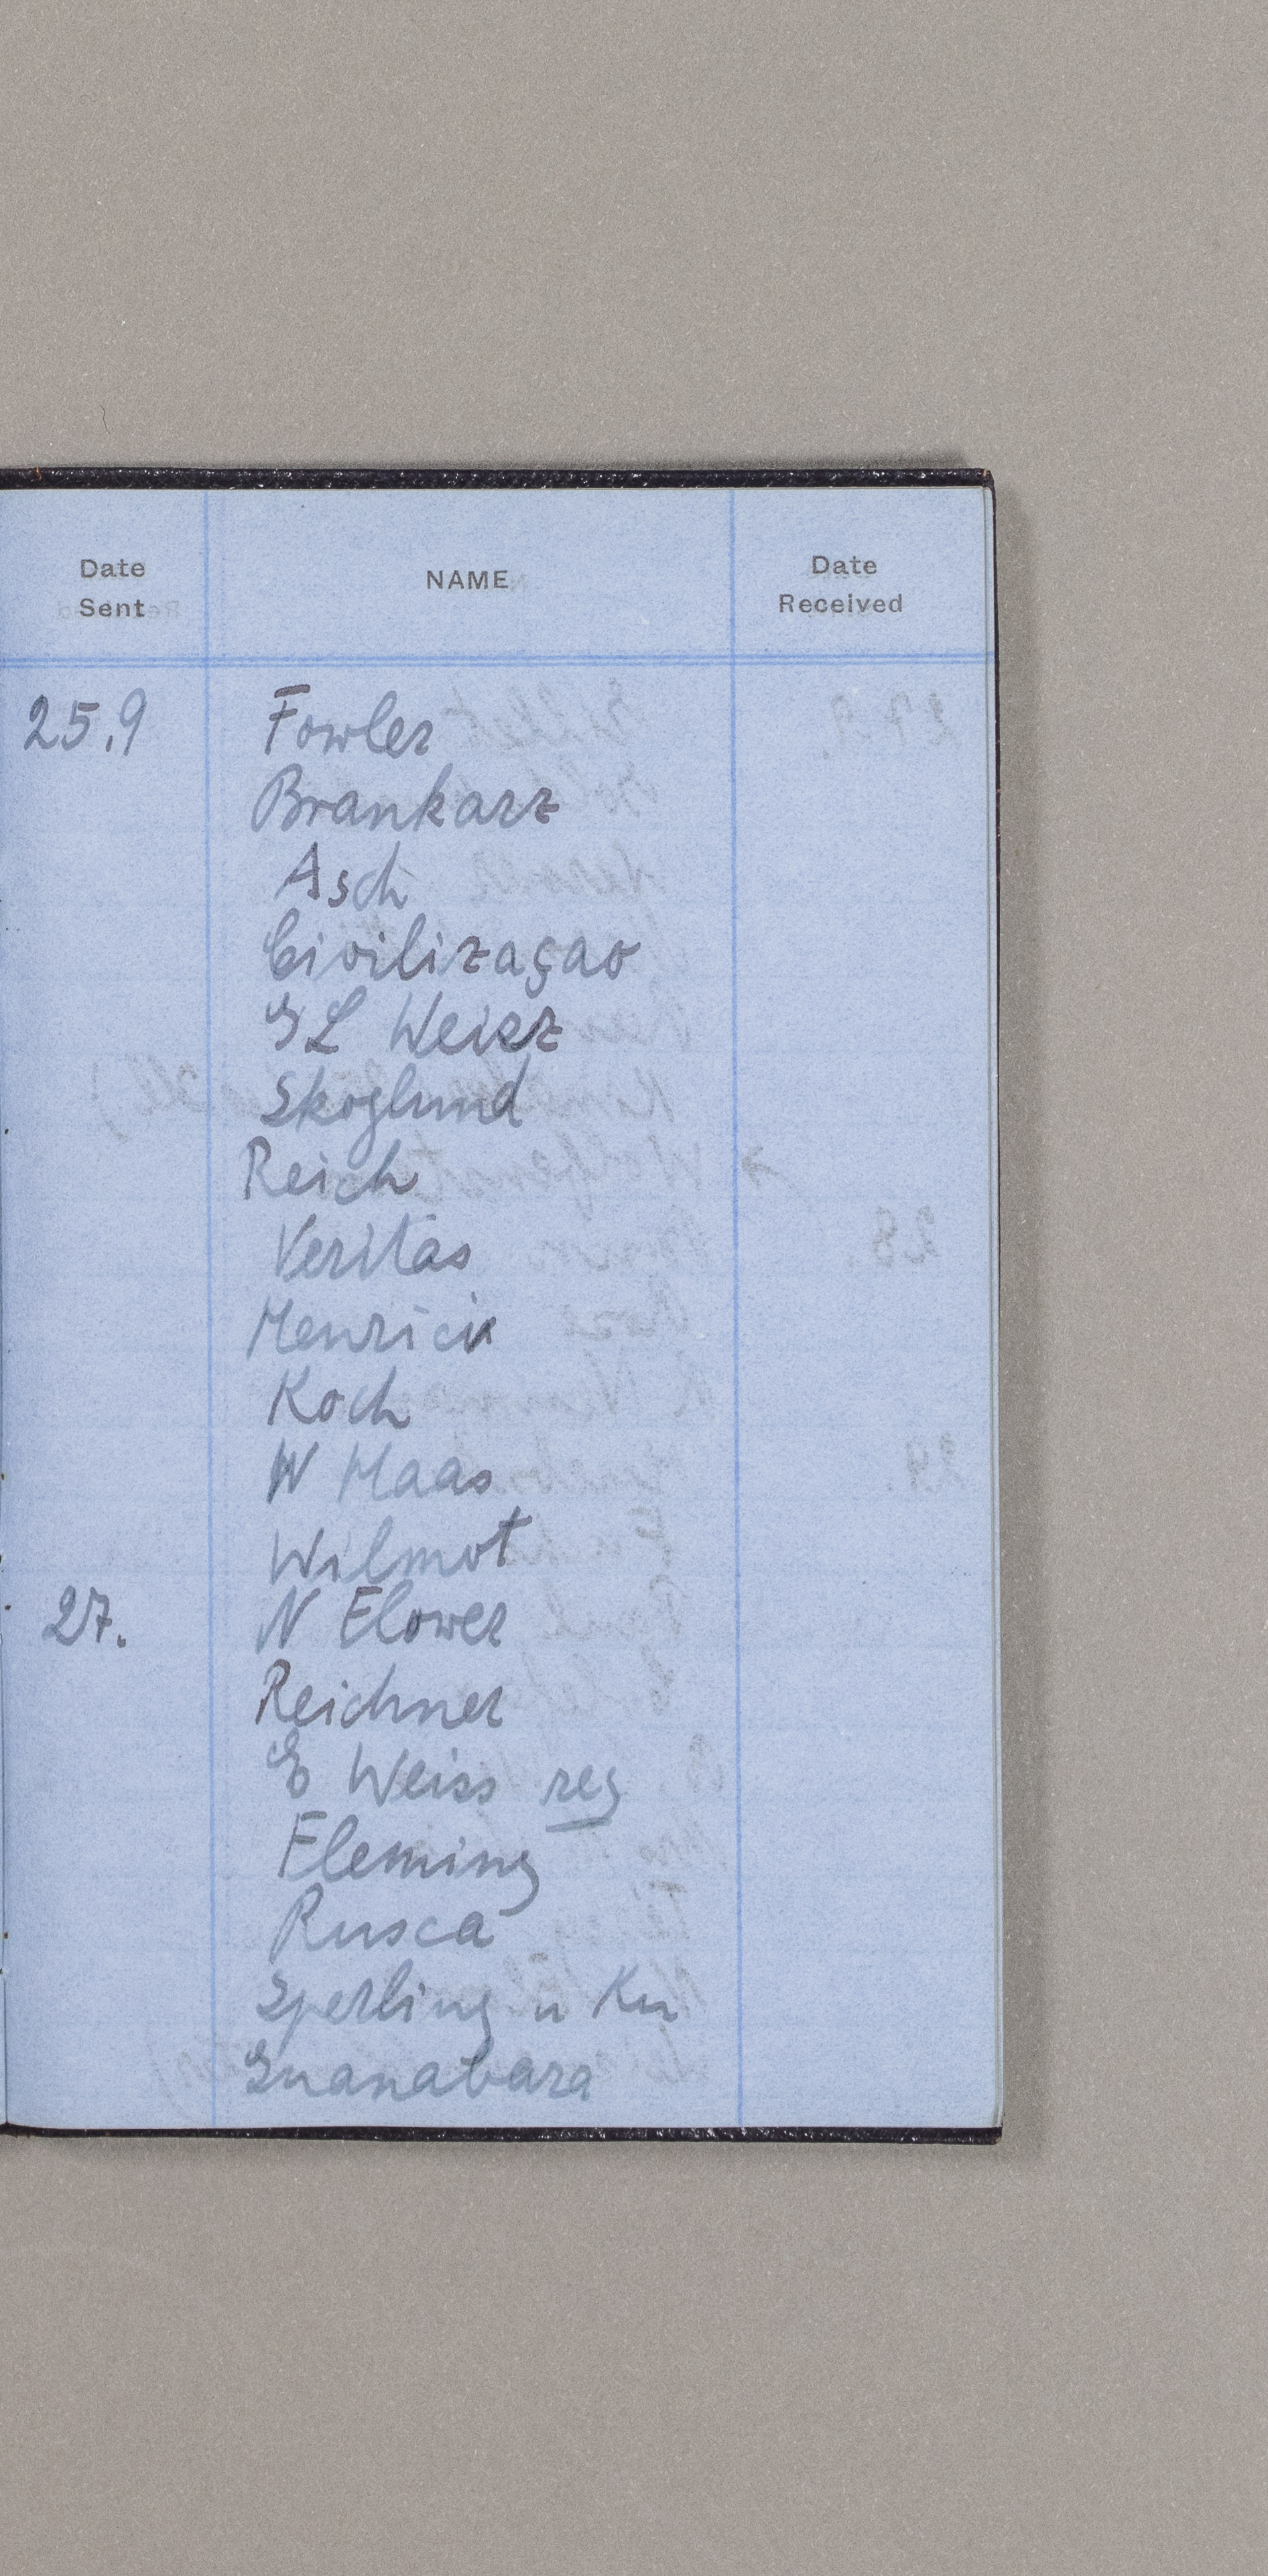 Date Sent NAME Date Received
25.9 Fowler
Brankarz
Asch
Civilizaçao
G L Weisz
Skoglund
Reich
Veritas
Henrici
Koch
W Maas
Wilmot
27. N Flower
Reichner
E Weiss reg
Fleming
Rusca
Sperling u Ku
Guanabara